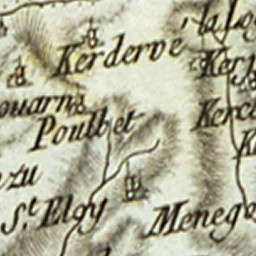 la Lo
Kerdervé
Ker
ouarn
Poulbet
Kerc
K
zu
S.t Eloy
Menego